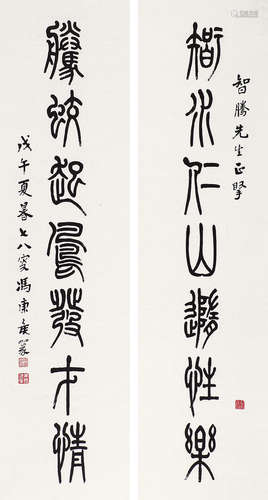 智騰先生正
智水仁山遐性樂
騰蛟起鳳發才情
戊午夏暮七八叟馮康侯篆